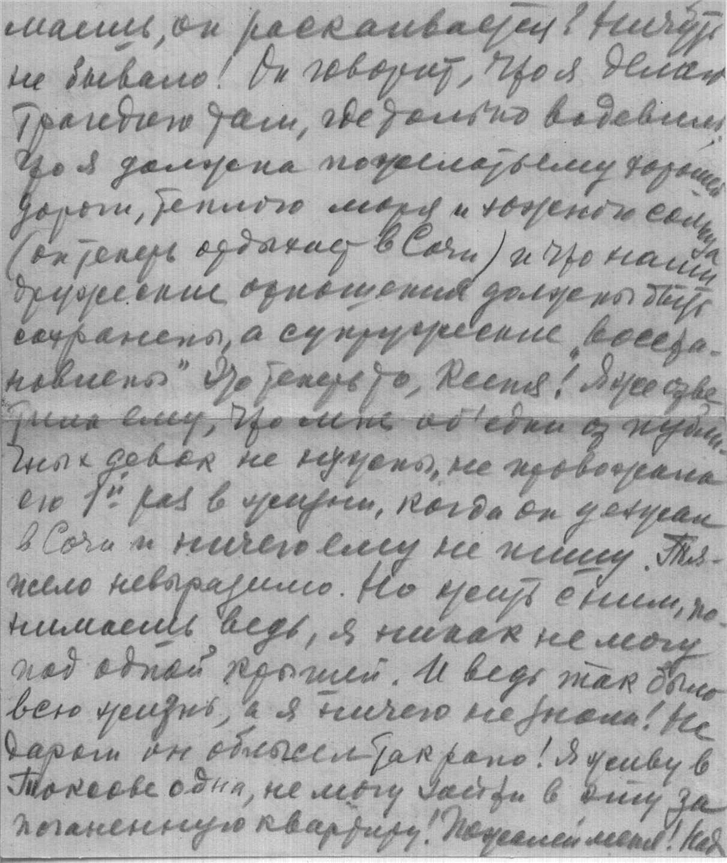 маешь, он раскаивается? Ничуть
не бывало! Он говорит, что я делаю
трагедию там, где только водевиль,
что я должна пожелать ему хорошей
дороги, теплого моря и южного солнца
(он теперь отдыхает в Сочи) и что наши
дружеские отношения должны быть
сохранены, а супружеские "восста-
новлены" Это теперь-то, Ксеня! Я уже отве
тила ему, что мне об'едки от публи-
чных девок не нужны, не провожала
его 1й раз в жизни, когда он уезжал
в Сочи и ничего ему не пишу. Тя-
жело невыразимо. Но жить с ним, по-
нимаешь ведь, я никак не могу
под одной крышей. И ведь так было
всю жизнь, а я ничего не знала! Не
даром он облысел так рано! Я живу в
Токсове одна, не могу зайти в эту за
поганенную квартиру! Пожалей меня! Над